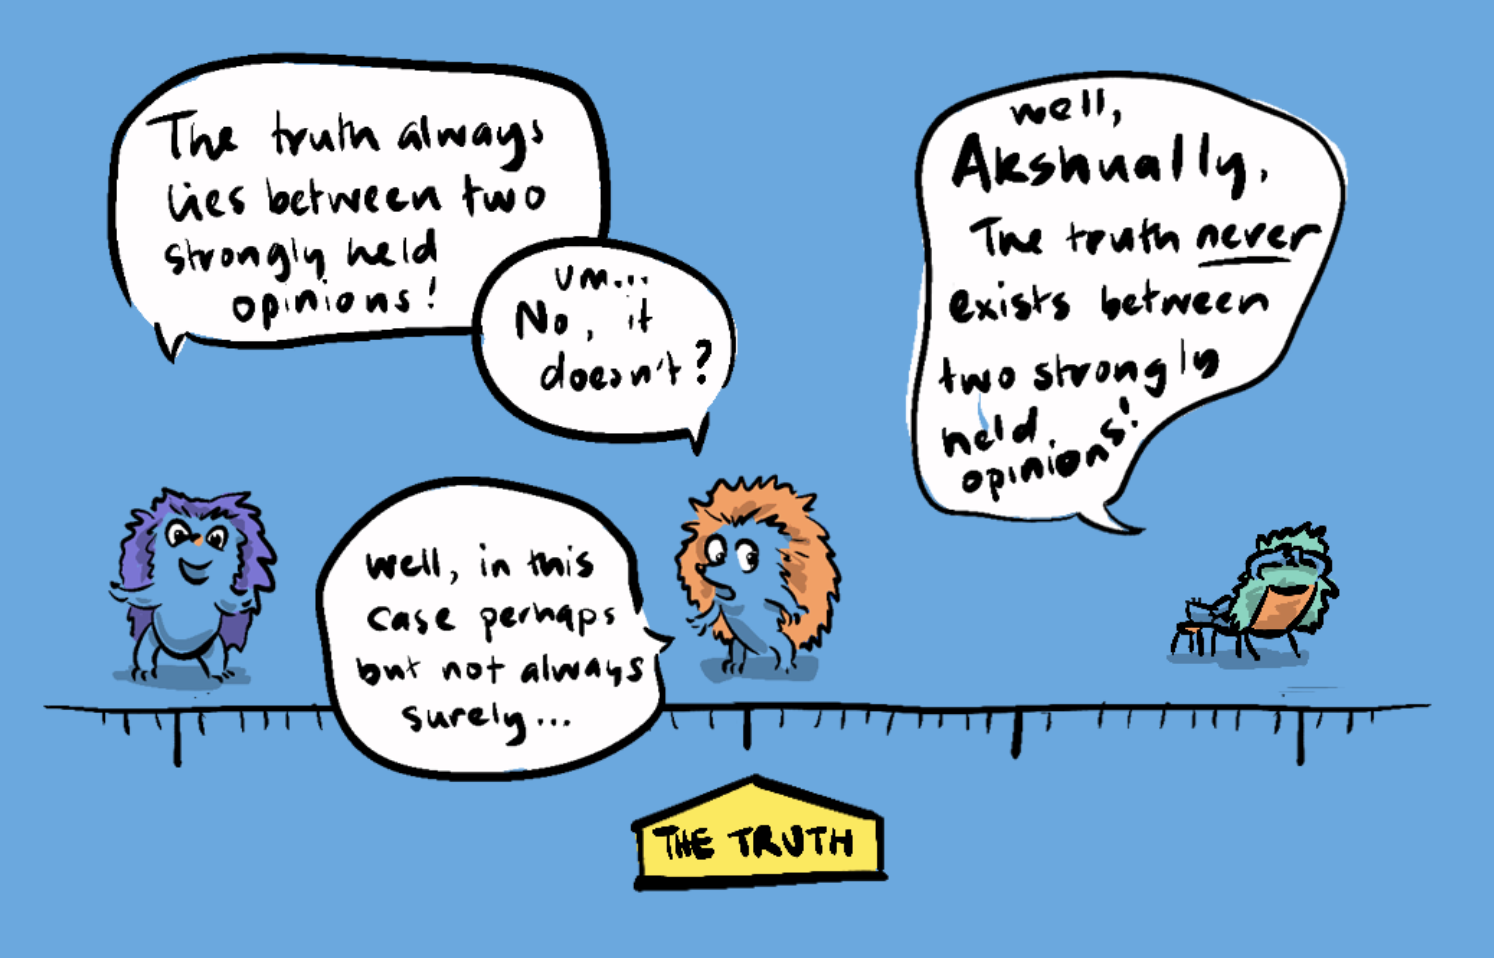 The truth always
lies between two
strongly held
opinions!
um...
No, it
doesn't?
well,
Akshually,
The truth never
exists between
two strongly
held
opinions!
well, in this
case perhaps
but not always
surely...
THE TRUTH